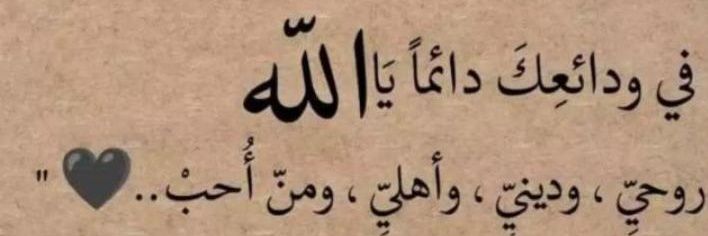 في ودائعِكَ دائماً يَاالله
روحيِّ ، ودينيِّ ، وأهليِّ ، ومنّ أُحبْ..🖤 "